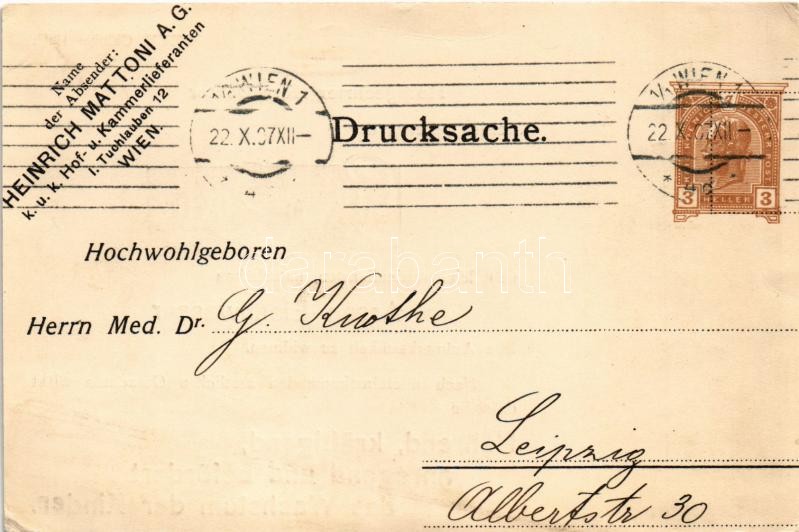 Name
der Absender:
HEINRICH MATTONI A. G.
k. u. k. Hof- u. Kammerlieferanten
I. Tuchlauben 12
WIEN.
WIEN 1
22. X. 07 XII–
*
WIEN 1
22. X. 07 XII–
*
3 HELLER 3
Drucksache.
Hochwohlgeboren
Herrn Med. Dr. G. Knothe
Leipzig
Albertstr 30
darabanth